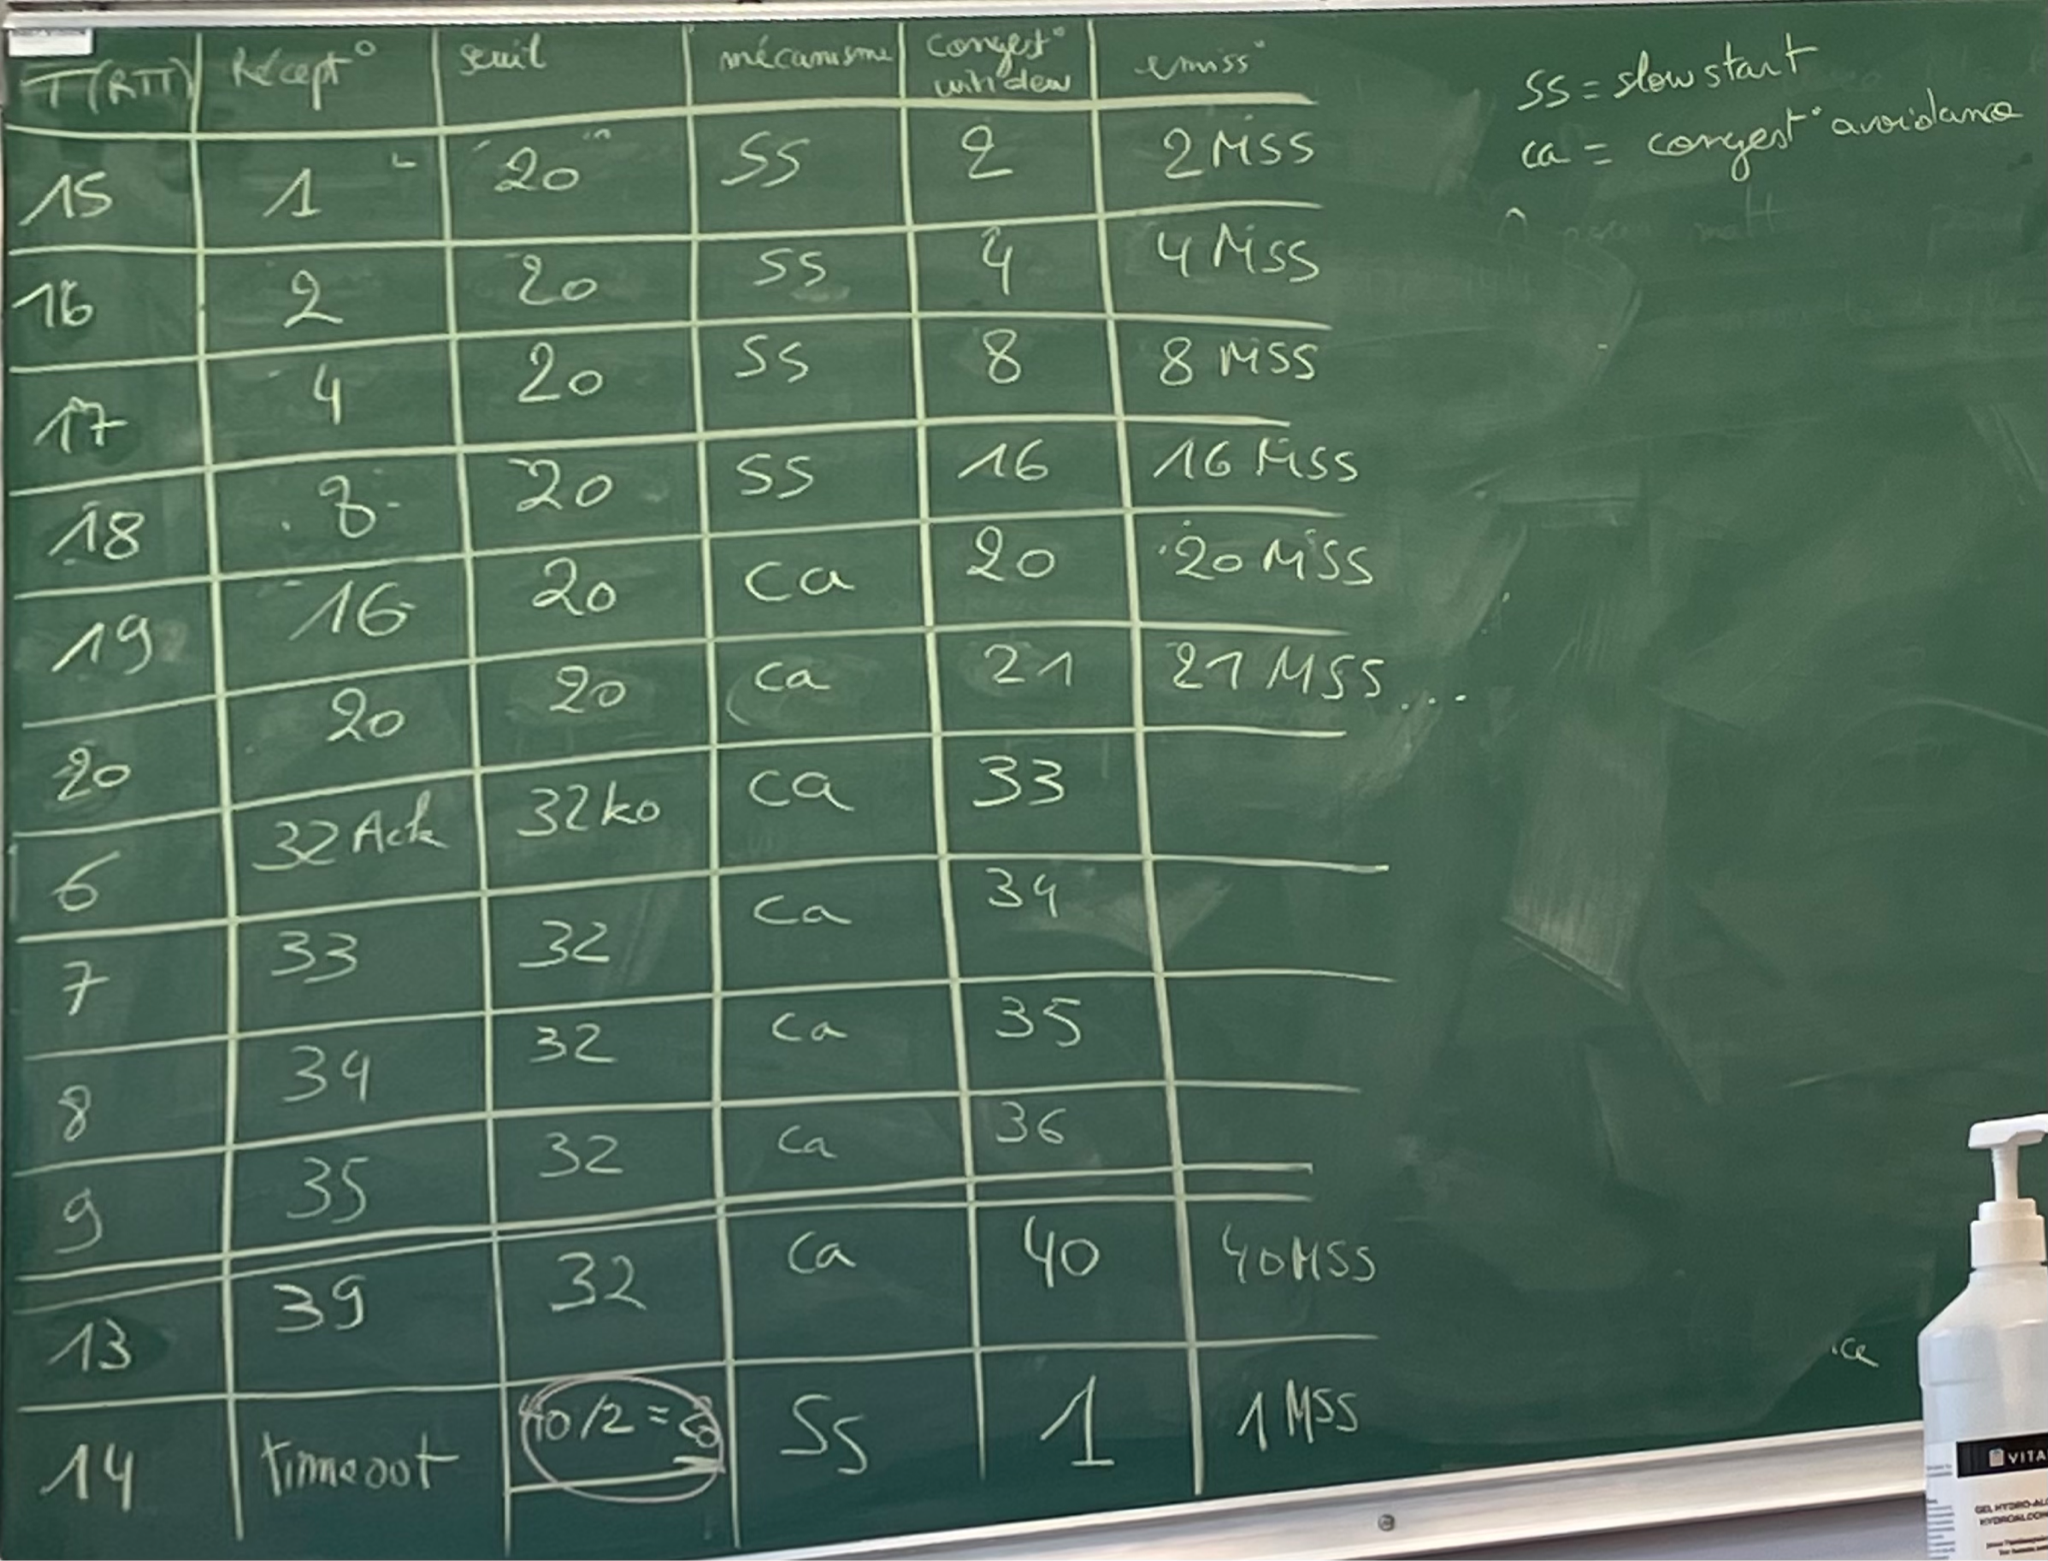 T(RTT) Récept° seuil mécanisme congest° window emiss°
15 1 20 SS 2 2 MSS
16 2 20 SS 4 4 MSS
17 4 20 SS 8 8 MSS
18 8 20 SS 16 16 MSS
19 16 20 ca 20 20 MSS
20 20 20 ca 21 21 MSS...
6 32 Ack 32 ko ca 33
7 33 32 ca 34
8 34 32 ca 35
9 35 32 ca 36
13 39 32 ca 40 40 MSS
14 timeout 40/2 = 20 SS 1 1 MSS
SS = slow start
ca = congest° avoidance
VITA
GEL HYDRO-AL
HYDROALCOO